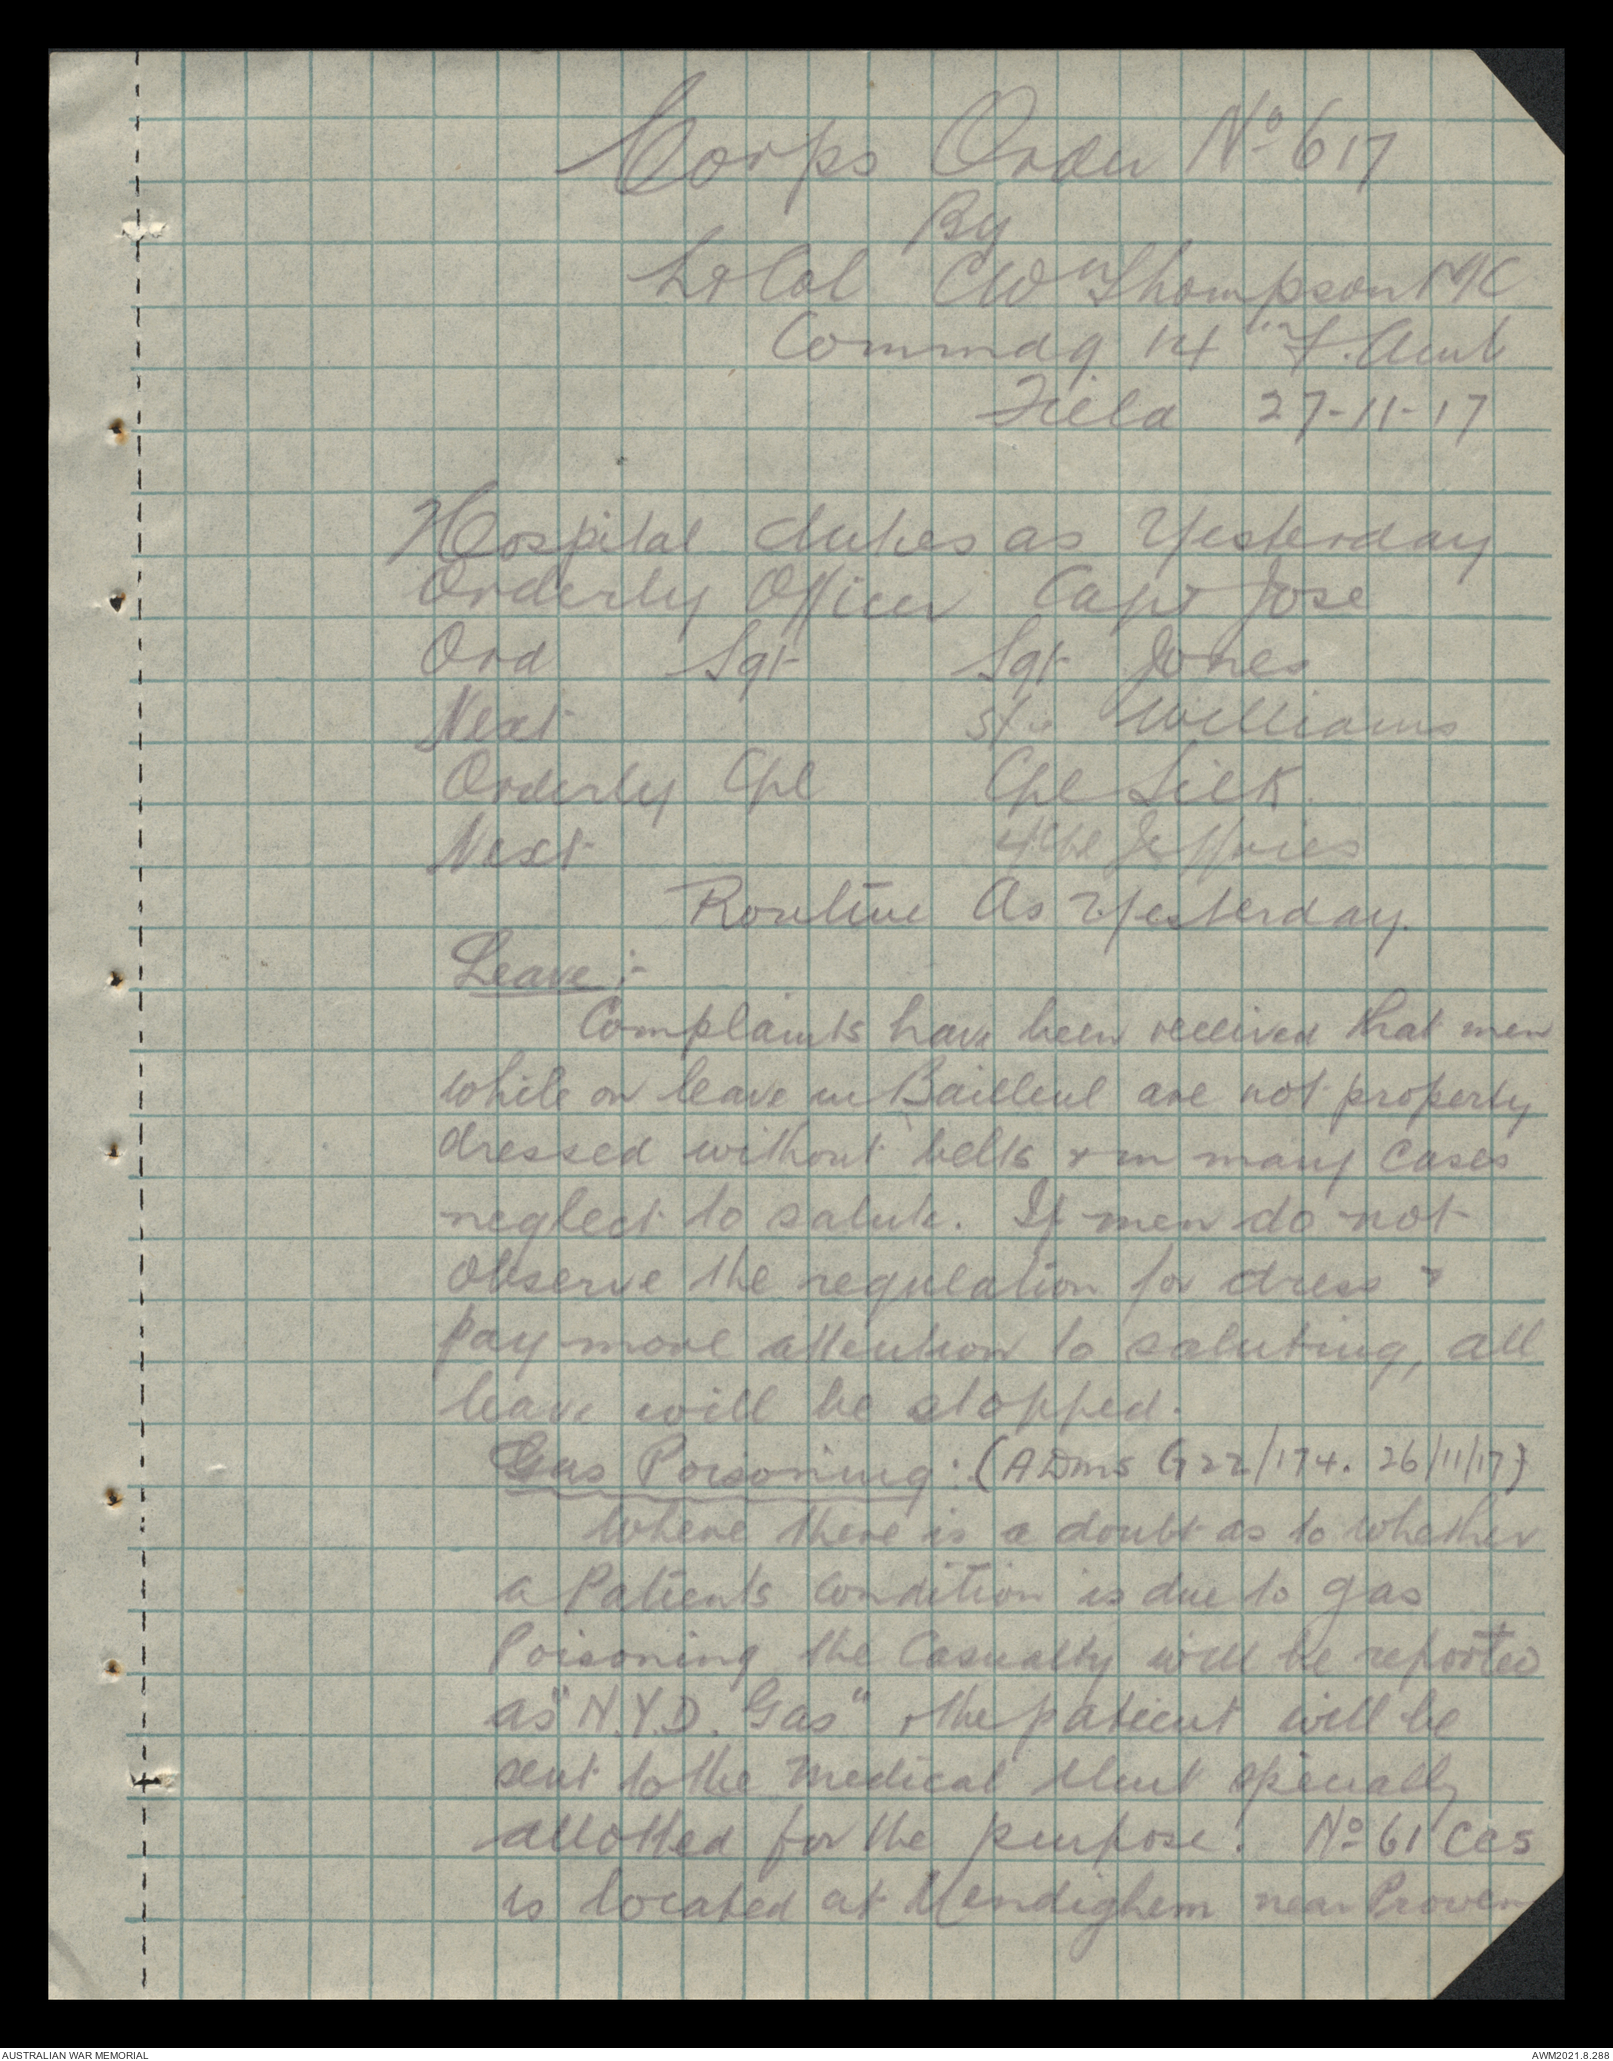 Corps Order No 617
By
Lt Col CW Thompson MC
Commdg 14th F. Amb
Field 27-11-17
Hospital duties as Yesterday
Orderly Officer Capt Jose
Ord Sgt Sgt Jones
Next Williams
Orderly Cpl Cpl Silk
Next Jeffries
Routine As Yesterday.
Leave:-
Complaints have been received that men
while on leave in Bailleul are not property
dressed without belts & in many cases
neglect to salute. If men do not
observe the regulation for dress &
pay more attention to saluting, all
leave will be stopped.
Gas Poisoning: (ADMS G 22/174. 26/11/17)
Where there is a doubt as to whether
a Patients condition is due to gas
Poisoning the Casualty will be reported
as "N.Y.D. Gas" & the patient will be
sent to the medical specially
allotted for the purpose. No 61 CCS
is located at Mendighem near Proven
AUSTRALIAN WAR MEMORIAL
AWM2021.8.288